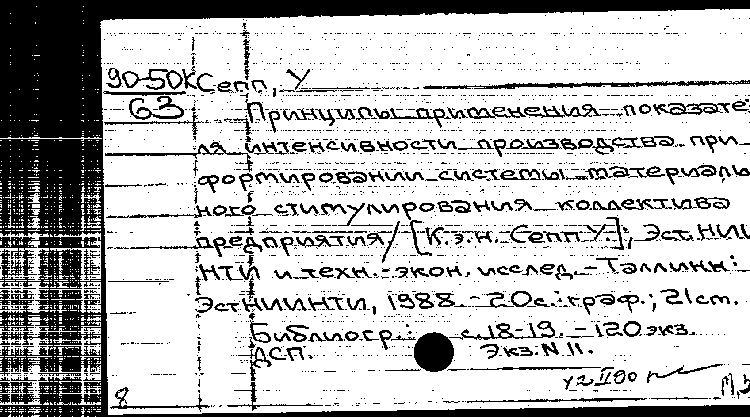 90-50К Сепп, У
63 Принципы применения показате
ля интенсивности производства при
формировании системы материаль
ного стимулирования коллектива
предприятия / [К.э.н. Сепп У.]; Эст.НИИ
НТИ и техн.-экон. исслед. - Таллинн:
ЭстНИИНТИ, 1988. - 20с.: граф.; 21см.
Библиогр.: с.18-19. - 120 экз.
ДСП. Экз.N 11.
8